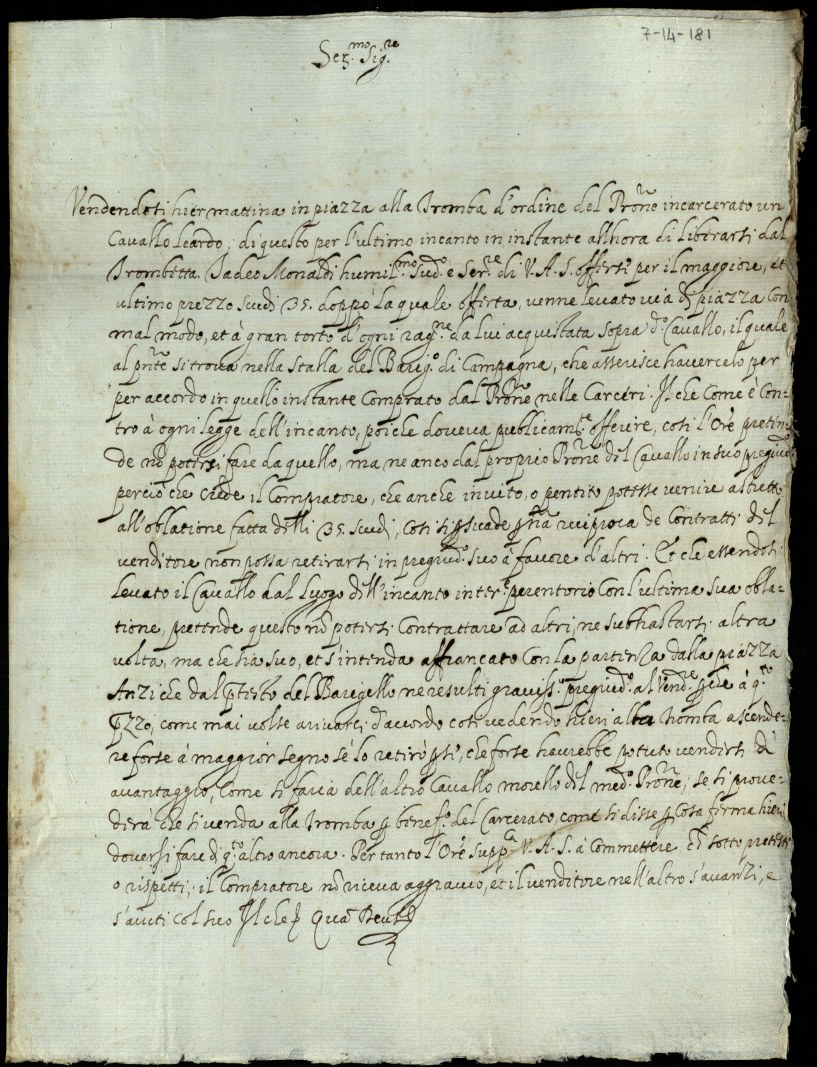 7-14-181
Ser.mo Sig.re
Vendendosi hier mattina in piazza alla Tromba d'ordine del Pr̃one incarcerato un
Cavallo leardo, di questo per l'ultimo incanto in instante allhora di liberarsi dal
Trombetta. Tadeo Monaldi humil.mo Sud.o e Ser.re di V. A. S. offersi per il maggiore, et
ultimo prezzo Scudi 35. doppò la quale offerta, venne levato via di piazza con
mal modo, et à gran torto d'ogni rag.ne da lui acquistata sopra d.o Cavallo, il quale
al pñte si trova nella stalla del Barig.o di Campagna, che asserisce havercelo per
per accordo in quello instante comprato dal Pr̃one nelle Carceri. Il che come è con=
tro à ogni legge dell'incanto, poiche doveva publicam.te offerire, così l'Or̃e preten
de nõ potersi fare da quello, ma ne anco dal proprio Pr̃one del Cavallo in suo pregiud.o
perciò che crede il Compratore, che anche invito, o pentito potesse venire astretto
all'oblatione fatta delli 35. scudi, così si p̱suade p̱ ñra reciproca de Contratti del
venditore non possa retirarsi in pregiud.o suo à favore d'altri. Et che essendosi
levato il Cavallo dal luogo dell'incanto inter.e perentorio con l'ultima sua obla=
tione, pretende questo nõ potersi Contrattare ad altri, ne subhastarsi altra
volta, ma che sia suo, et s'intenda affrancato con la partenza dalla piazza
Anzi che dal p̱testo del Barigello ne resulti graviss.o pregiud.o al Vend.re p̱che à q.to
p̱zzo, come mai volse arivarci d'accordo così vedendo hieri alla tromba ascende=
re forse à maggior segno se lo retirò p̱ sè, che forse havrebbe potuto vendersi dà
avantaggio, Come si farà dell'altro Cavallo morello del med.o Pr̃one, se si prove=
derà che si venda alla Tromba p̱ benef.o del Carcerato, come si disse p̱ cosa ferma hieri
doversi fare di q.to altro ancora. Per tanto l'Or̃e supp.ca V. A. S. à Commettere ch̃ sotto pretesti
o rispetti, il Compratore nõ riceva aggravio, et il venditore nell'altro s'avanzi, e
s'aiuti col suo Il che